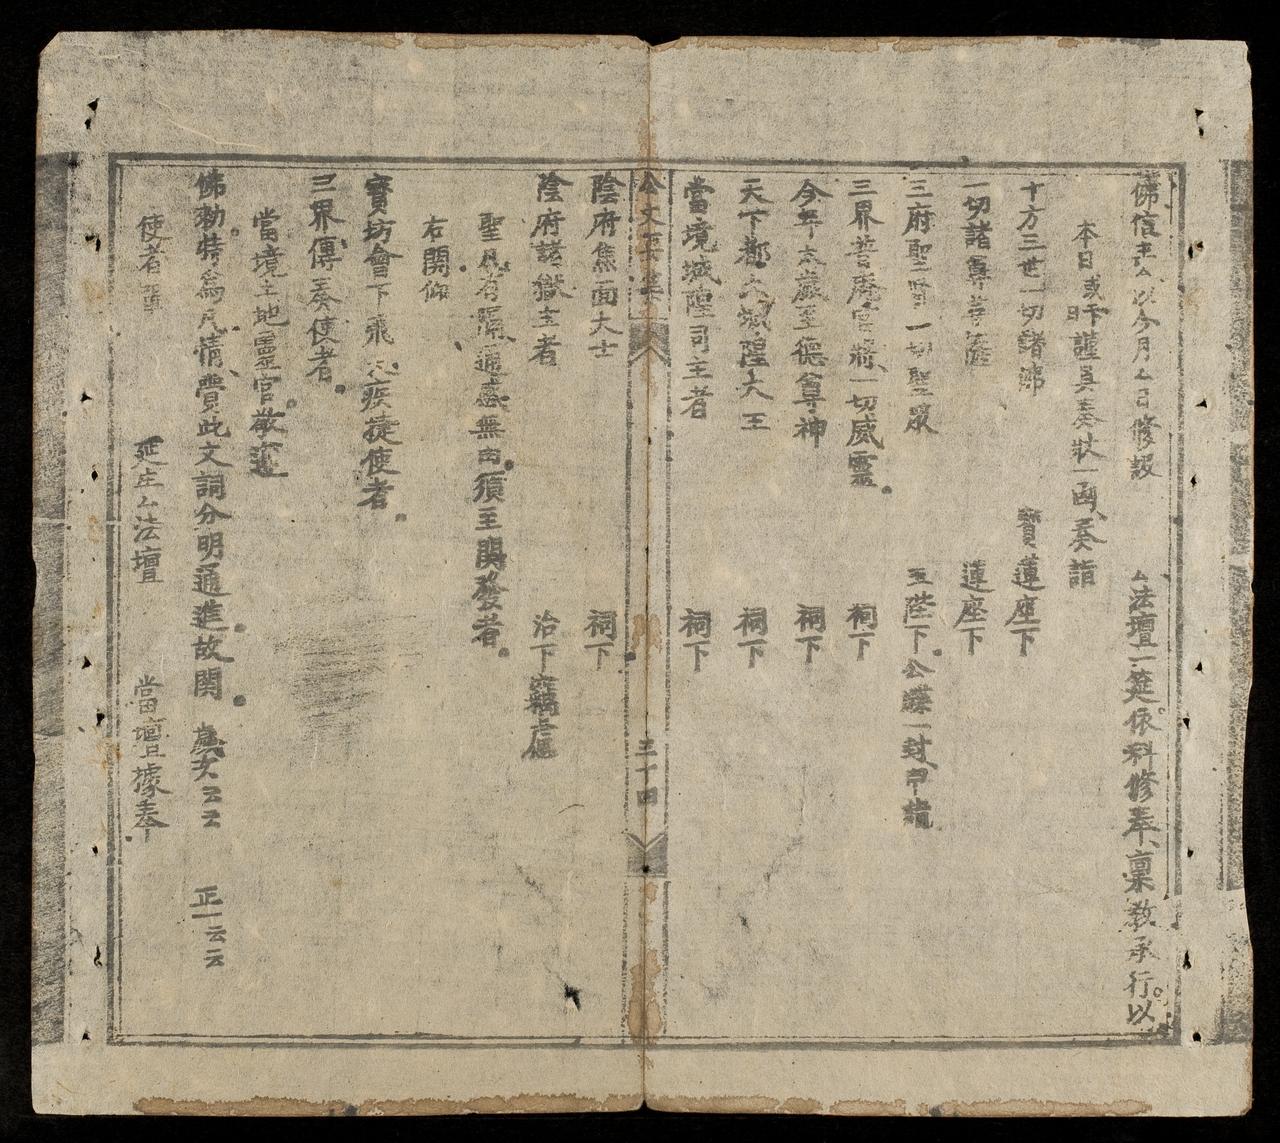 佛信士厶以今月厶日修設 厶法壇一筵依科修奉稟教承行以
本日或昨謹具奏狀一函奏詣
十方三世一切諸佛 寶蓮座下
一切諸尊菩薩 蓮座下
三府聖賢一切聖眾 玉陛下公牒一封申詣
三界菩薩官將一切威靈 祠下
今年太歲至德尊神 祠下
天下都大城隍大王 祠下
當境城隍司主者 祠下
三十四
陰府焦面大士 祠下
陰府諸獄主者 治下
聖凡有隔通感無由須至関發者
右関仰
寶坊會下飛 疾捷使者
三界傳奏使者
當境土地靈官敬
佛勅特為凡情賫此文詞分明通進故関 云云 正一云云
使者 延生厶法壇 當壇據奉